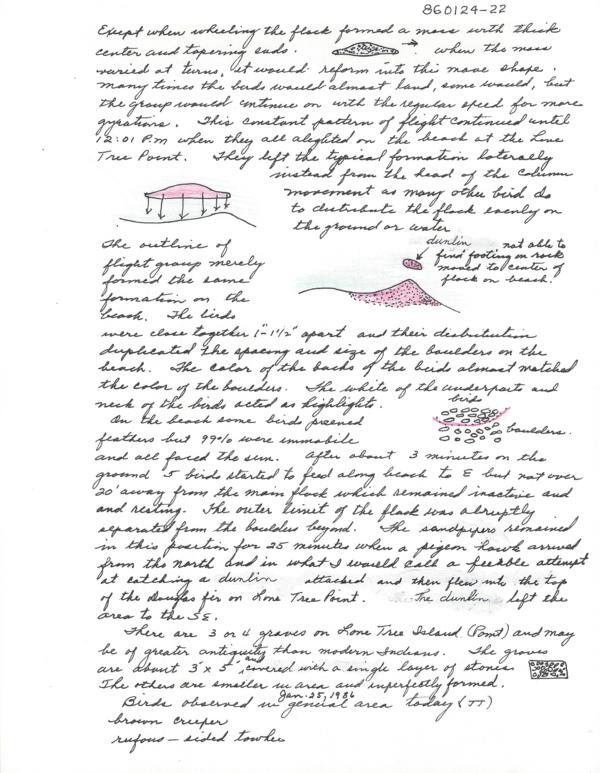 860124-22
Except when wheeling the flock formed a mass with thick
center and tapering ends. when the mass
varied at turns, it would reform into this move shape.
many times the birds would almost land, some would, but
the group would continue on with the regular speed for more
gyrations. This constant pattern of flight continued until
12:01 P.M when they all aleghted on the beach at the Lone
Tree Point. They left the typical formation laterally
instead from the head of the column
movement as many other bird do
to distribute the flock evenly on
the ground or water
The outline of
flight group merely
formed the same
formation on the
beach. The birds
dunlin not able to
find footing on rock
moved to center of
flock on beach.
were close together 1"-1½" apart and their distribution
duplicated the spacing and size of the boulders on the
beach. The color of the backs of the birds almost matched
the color of the boulders. The white of the underparts and
neck of the birds acted as highlights.
birds
boulders.
On the beach some birds preened
feathers but 99% were immobile
and all faced the sun. After about 3 minutes on the
ground 5 birds started to feed along beach to E but not over
20' away from the main flock which remained inactive and
and resting. The outer limit of the flock was abruptly
separated from the boulders beyond. The sandpipers remained
in this position for 25 minutes when a pigeon hawk arrived
from the north and in what I would call a feekble attempt
at catching a dunlin attacked and then flew into the top
of the Douglas fir on Lone Tree Point. The dunlin left the
area to the SE.
There are 3 or 4 graves on Lone Tree Island (Point) and may
be of greater antiquity than modern Indians. The graves
are about 3' x 5' and covered with a single layer of stones.
The others are smaller in area and inperfectly formed.
Jan. 25, 1986
Birds observed in general area today (TT)
brown creeper
rufous-sided towhee